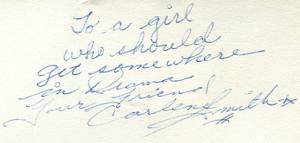 To a girl
who should
get somewhere
in Drama
Your friend
Carlen Smith